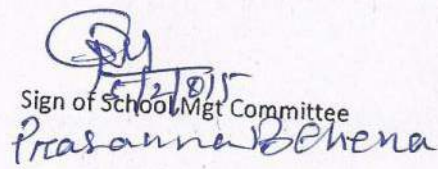 Sign of School Mgt Committee
Prasanna Behera